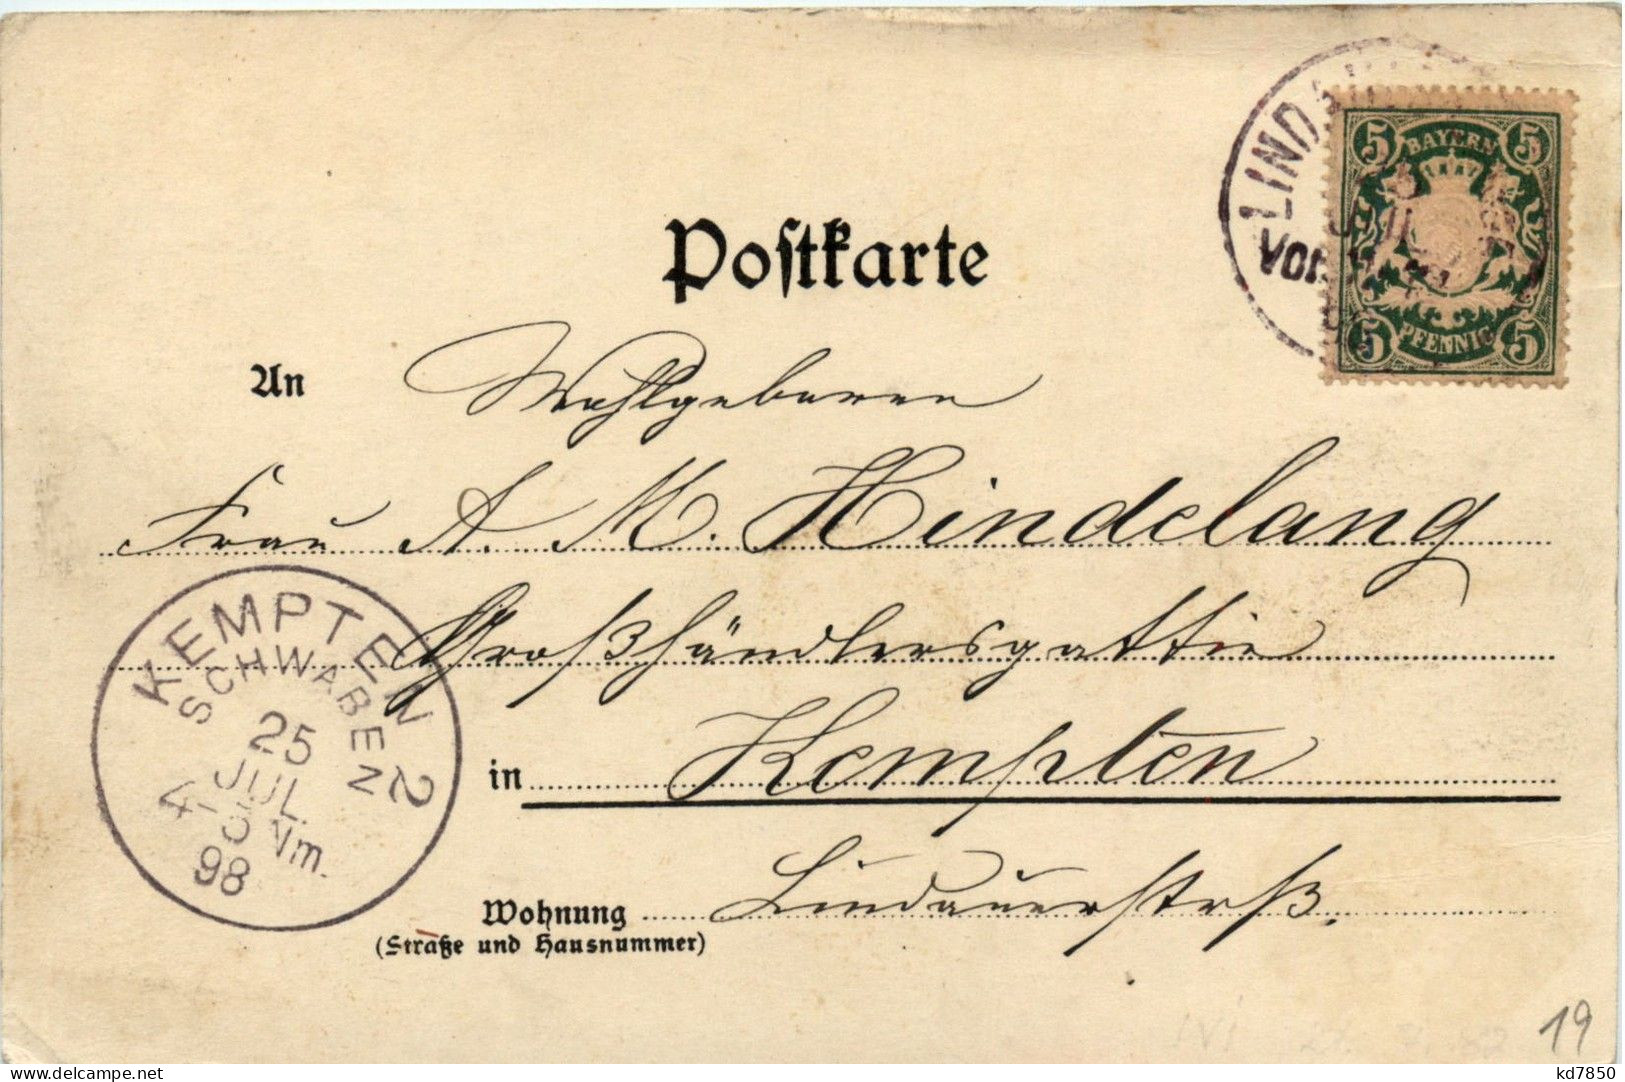 Postkarte
LINDAU
Vor.
JUL
5 BAYERN 5
5 PFENNIG 5
An Wohlgeboren
Frau A. M. Hindelang
Großhändlersgattin
in Kempten
Wohnung Lindauerstrß.
(Straße und Hausnummer)
KEMPTEN 2
SCHWABEN
25
JUL.
4-5 Nm.
98
19
delcampe.net
kd7850